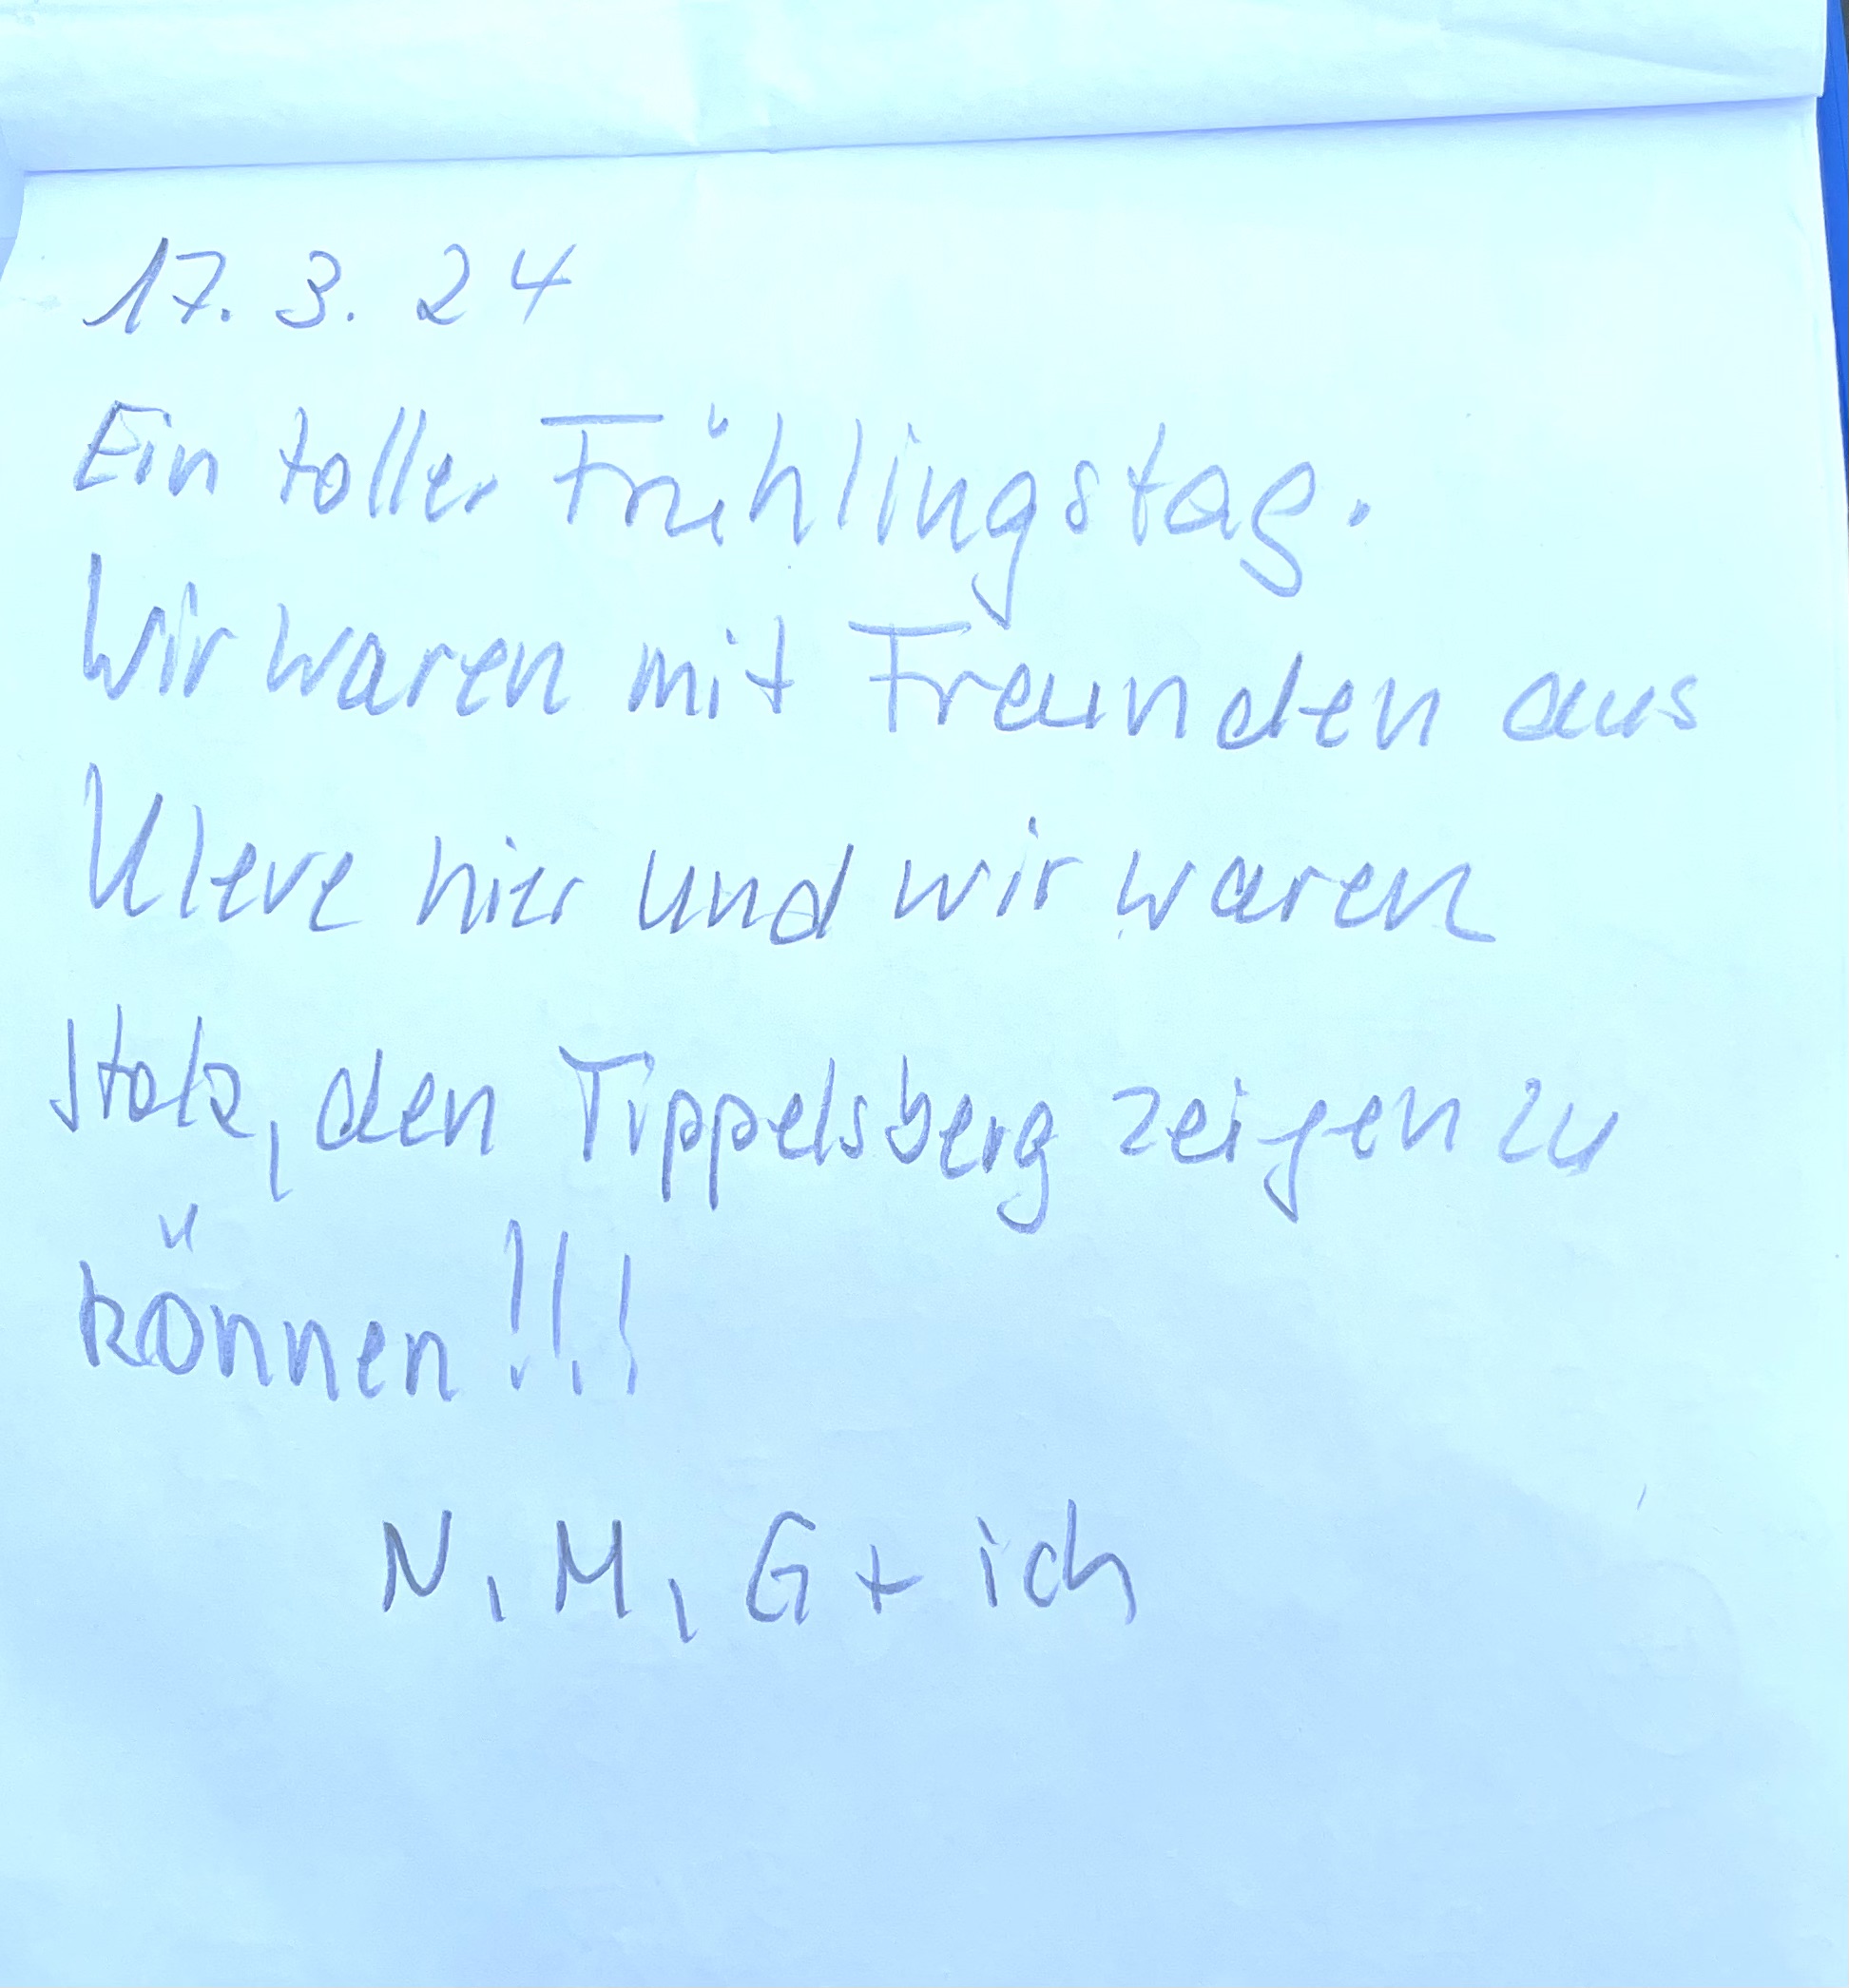 17. 3. 24
Ein toller Frühlingstag.
Wir waren mit Freunden aus
Kleve hier und wir waren
stolz, den Tippelsberg zeigen zu
können!!!
N, M, G + ich